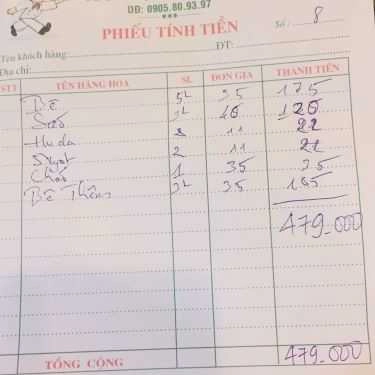 DĐ: 0905.80.93.97
PHIẾU TÍNH TIỀN
Số: 8
Tên khách hàng:
ĐT:
Địa chỉ:
STT TÊN HÀNG HÓA SL ĐƠN GIÁ THÀNH TIỀN
Bê 5L 35 175
26
Huda 11 22
2 11 22
Cháo 1 35 35
Bê Thêm 3L 35 105
479.000
TỔNG CỘNG 479.000